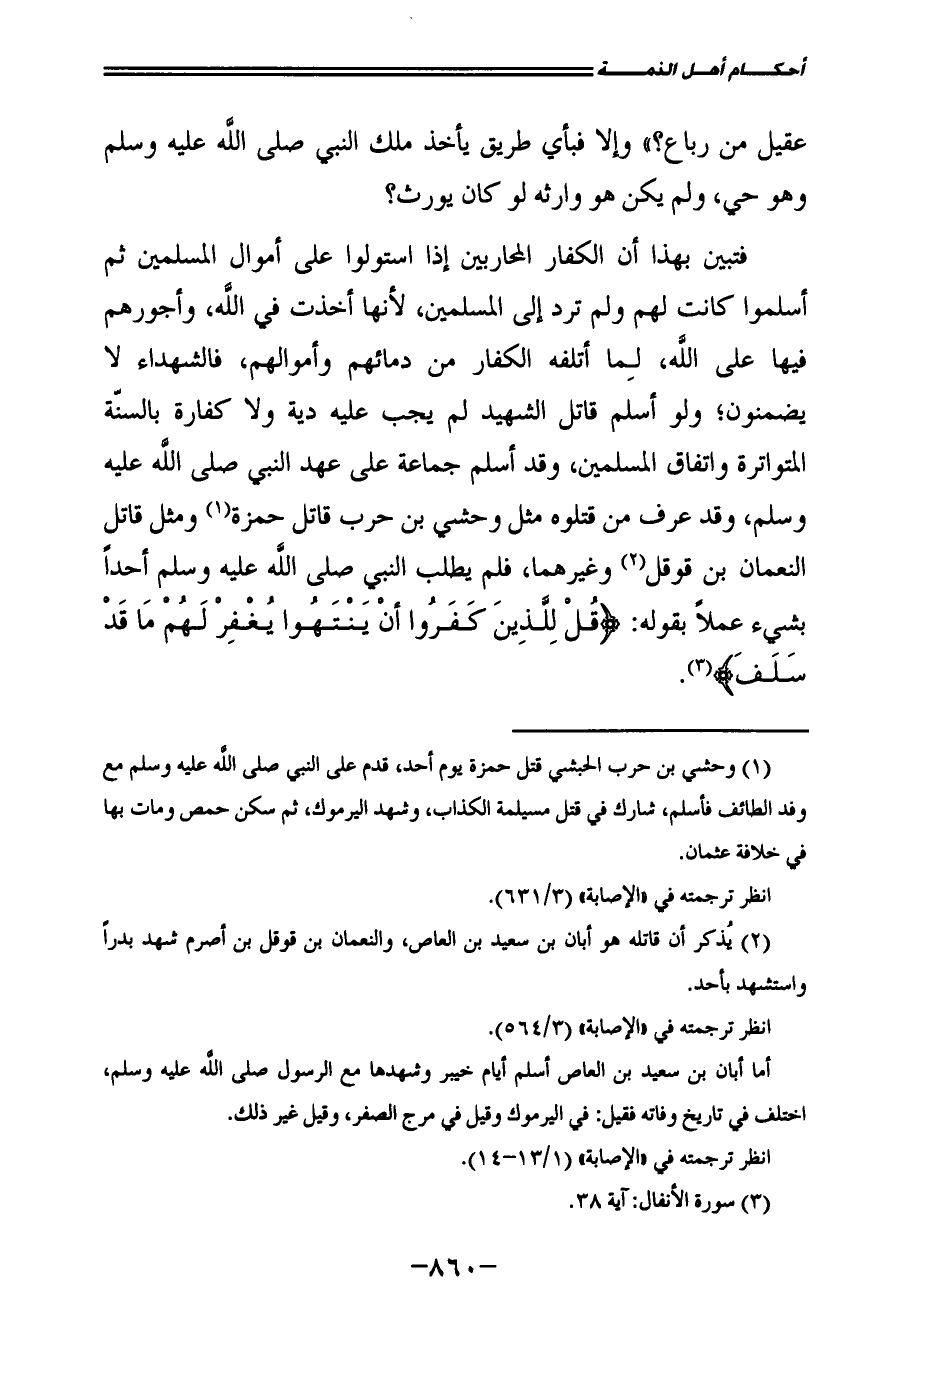 أحكـــام أهــل الذمــــة
عقيل من رباع؟» وإلا فبأي طريق يأخذ ملك النبي صلى اللَّه عليه وسلم
وهو حي، ولم يكن هو وارثه لو كان يورث؟
فتبين بهذا أن الكفار المحاربين إذا استولوا على أموال المسلمين ثم
أسلموا كانت لهم ولم ترد إلى المسلمين، لأنها أخذت في اللَّه، وأجورهم
فيها على اللَّه، لِما أتلفه الكفار من دمائهم وأموالهم، فالشهداء لا
يضمنون؛ ولو أسلم قاتل الشهيد لم يجب عليه دية ولا كفارة بالسنّة
المتواترة واتفاق المسلمين، وقد أسلم جماعة على عهد النبي صلى اللَّه عليه
وسلم، وقد عرف من قتلوه مثل وحشي بن حرب قاتل حمزة(١) ومثل قاتل
النعمان بن قوقل(٢) وغيرهما، فلم يطلب النبي صلى اللَّه عليه وسلم أحداً
بشيء عملاً بقوله: ﴿قُلْ لِلَّذِينَ كَفَرُوا أنْ يَنْتَهُوا يُغْفِرْ لَهُمْ مَا قَدْ
سَلَفَ﴾(٣).
(١) وحشي بن حرب الحبشي قتل حمزة يوم أحد، قدم على النبي صلى اللَّه عليه وسلم مع
وفد الطائف فأسلم، شارك في قتل مسيلمة الكذاب، وشهد اليرموك، ثم سكن حمص ومات بها
في خلافة عثمان.
انظر ترجمته في «الإصابة» (٦٣١/٣).
(٢) يُذكر أن قاتله هو أبان بن سعيد بن العاص، والنعمان بن قوقل بن أصرم شهد بدراً
واستشهد بأحد.
انظر ترجمته في «الإصابة» (٥٦٤/٣).
أما أبان بن سعيد بن العاص أسلم أيام خيبر وشهدها مع الرسول صلى اللَّه عليه وسلم،
اختلف في تاريخ وفاته فقيل: في اليرموك وقيل في مرج الصفر، وقيل غير ذلك.
انظر ترجمته في «الإصابة» (١٣/١-١٤).
(٣) سورة الأنفال: آية ٣٨.
-٨٦٠-